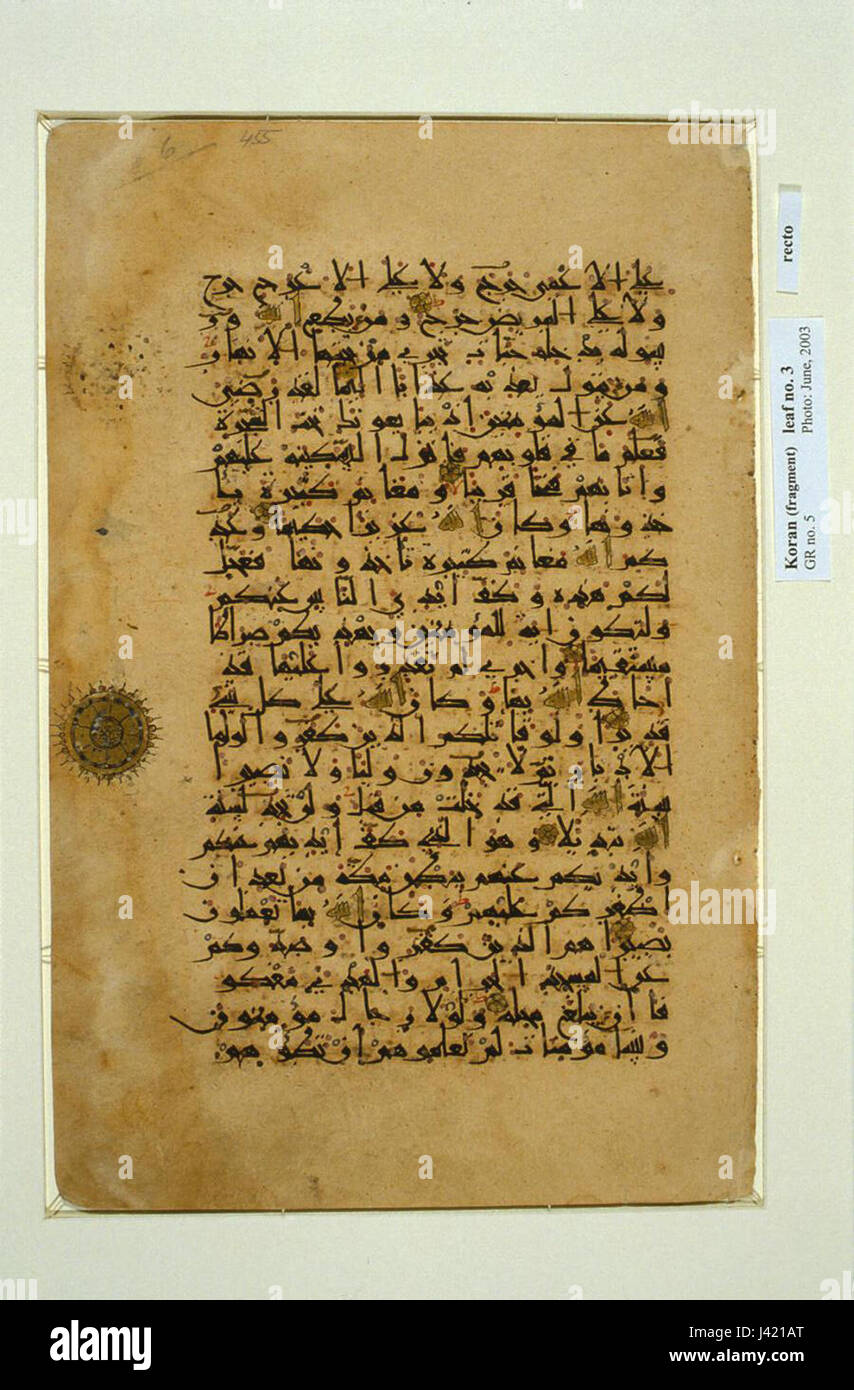 6 455
على الاعمى حرج ولا على الاعرج حرج
ولا على المريض حرج ومن يطع الله ور
سوله يدخله جنات تجري من تحتها الانهار
ومن يتول يعذبه عذابا اليما لقد رضي
الله عن المؤمنين اذ يبايعونك تحت الشجرة
فعلم ما في قلوبهم فانزل السكينة عليهم
واثابهم فتحا قريبا ومغانم كثيرة يا
خذونها وكان الله عزيزا حكيما وعد
كم الله مغانم كثيرة تاخذونها فعجل
لكم هذه وكف ايدي الناس عنكم
ولتكون اية للمؤمنين ويهديكم صراطا
مستقيما واخرى لم تقدروا عليها قد
احاط الله بها وكان الله على كل شيء
قديرا ولو قاتلكم الذين كفروا لولوا
الادبار ثم لا يجدون وليا ولا نصيرا
سنة الله التي قد خلت من قبل ولن تجد لسنة
الله تبديلا وهو الذي كف ايديهم عنكم
وايديكم عنهم ببطن مكة من بعد ان
اظفركم عليهم وكان الله بما تعملون
بصيرا هم الذين كفروا وصدوكم
عن المسجد الحرام والهدي معكو
فا ان يبلغ محله ولولا رجال مؤمنون
ونساء مؤمنات لم تعلموهم ان تطؤهم
recto
Koran (fragment) leaf no. 3
GR no. 5 Photo: June, 2003
alamy
Image ID: J421AT
www.alamy.com